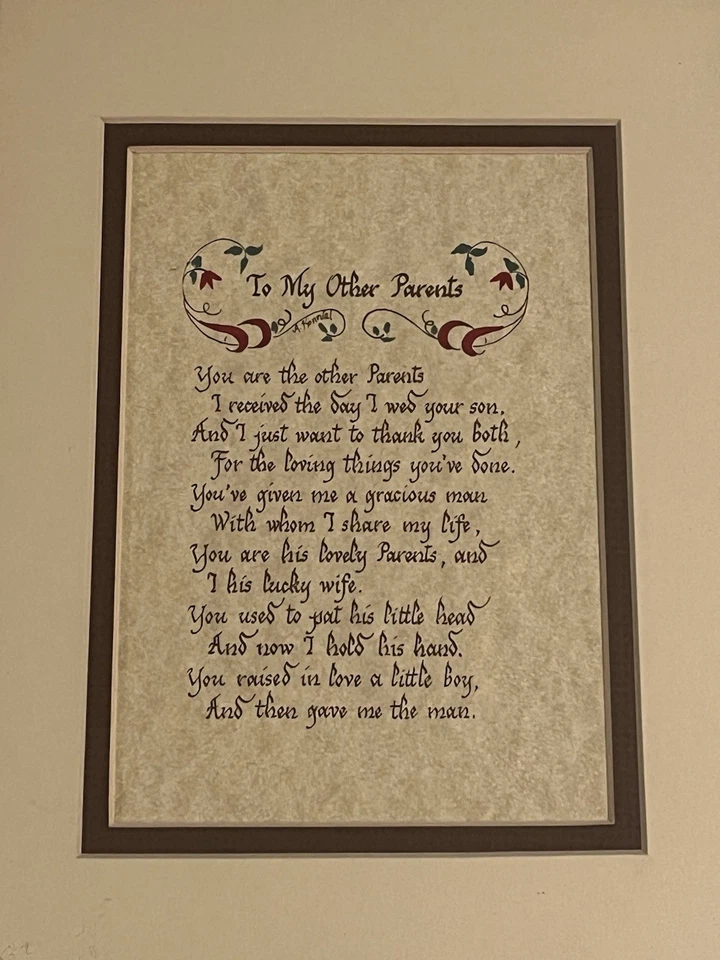 To My Other Parents
You are the other Parents
I received the day I wed your son.
And I just want to thank you both,
For the loving things you've done.
You've given me a gracious man
With whom I share my life,
You are his lovely Parents, and
I his lucky wife.
You used to pat his little head
And now I hold his hand.
You raised in love a little boy,
And then gave me the man.